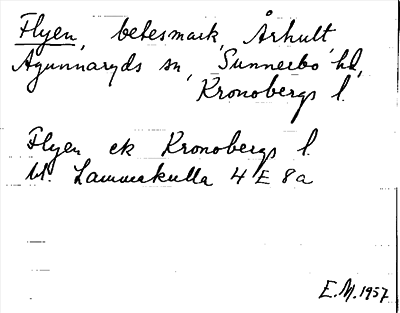 Flyen, betesmark, Århult
Agunnaryds sn, Sunnerbo hd,
Kronobergs l.
Flyen ek Kronobergs l.
bl. Lammakulla 4 E 8a
E.M. 1957